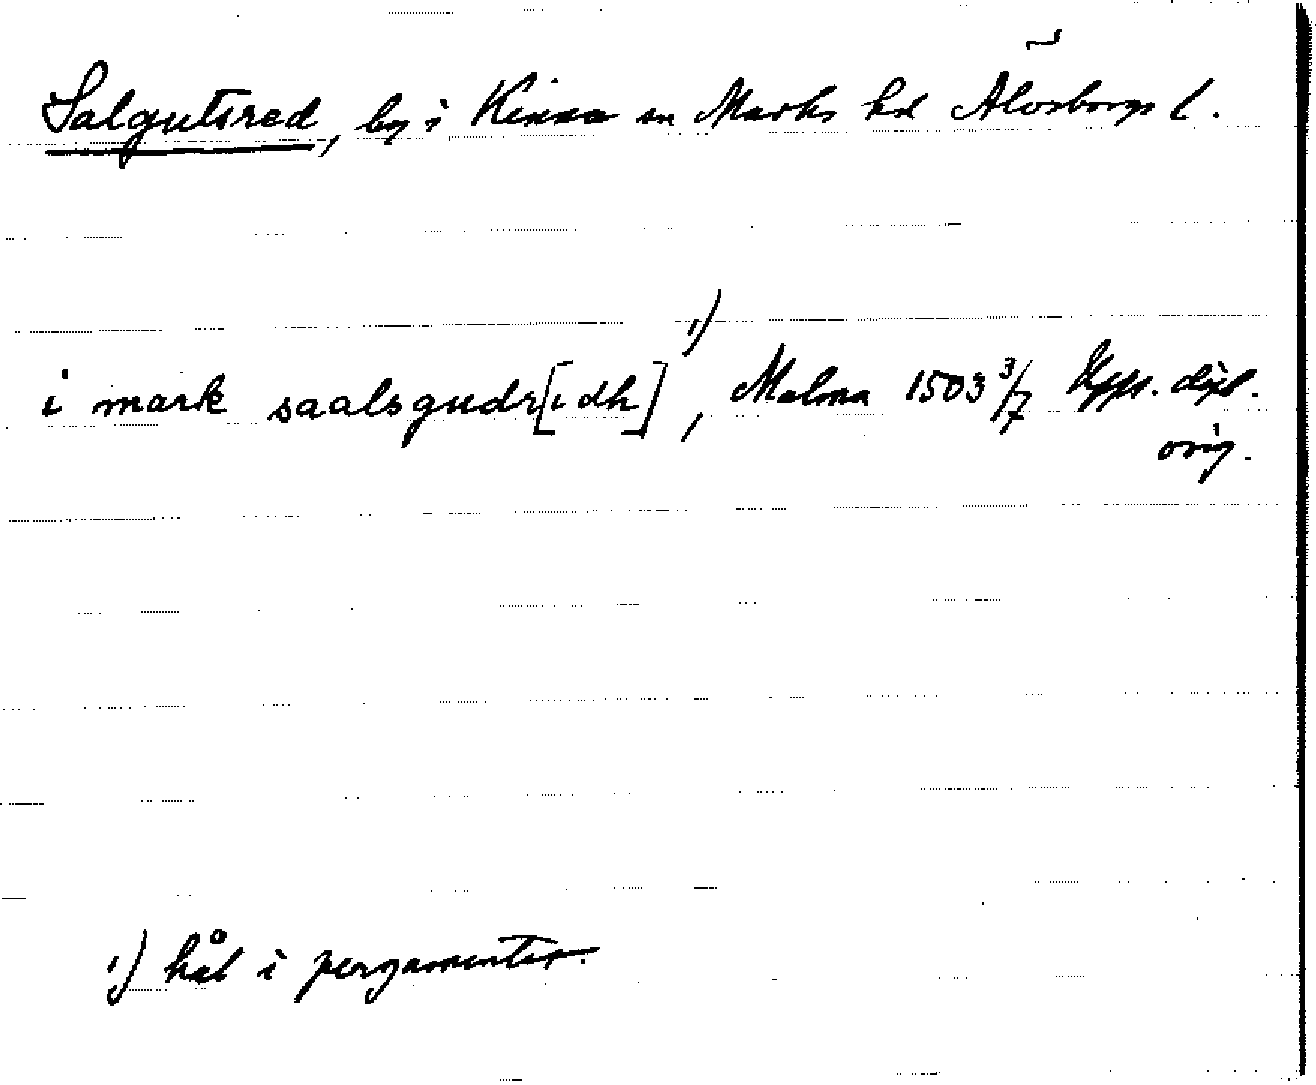 Salgutsred, by i Kinna sn Marks hd Älvsborgs l.
i mark saalsgudr[idh] 1), Malma 1503 3/7 Uppl. dipl.
orig.
1) hål i pergamentet.